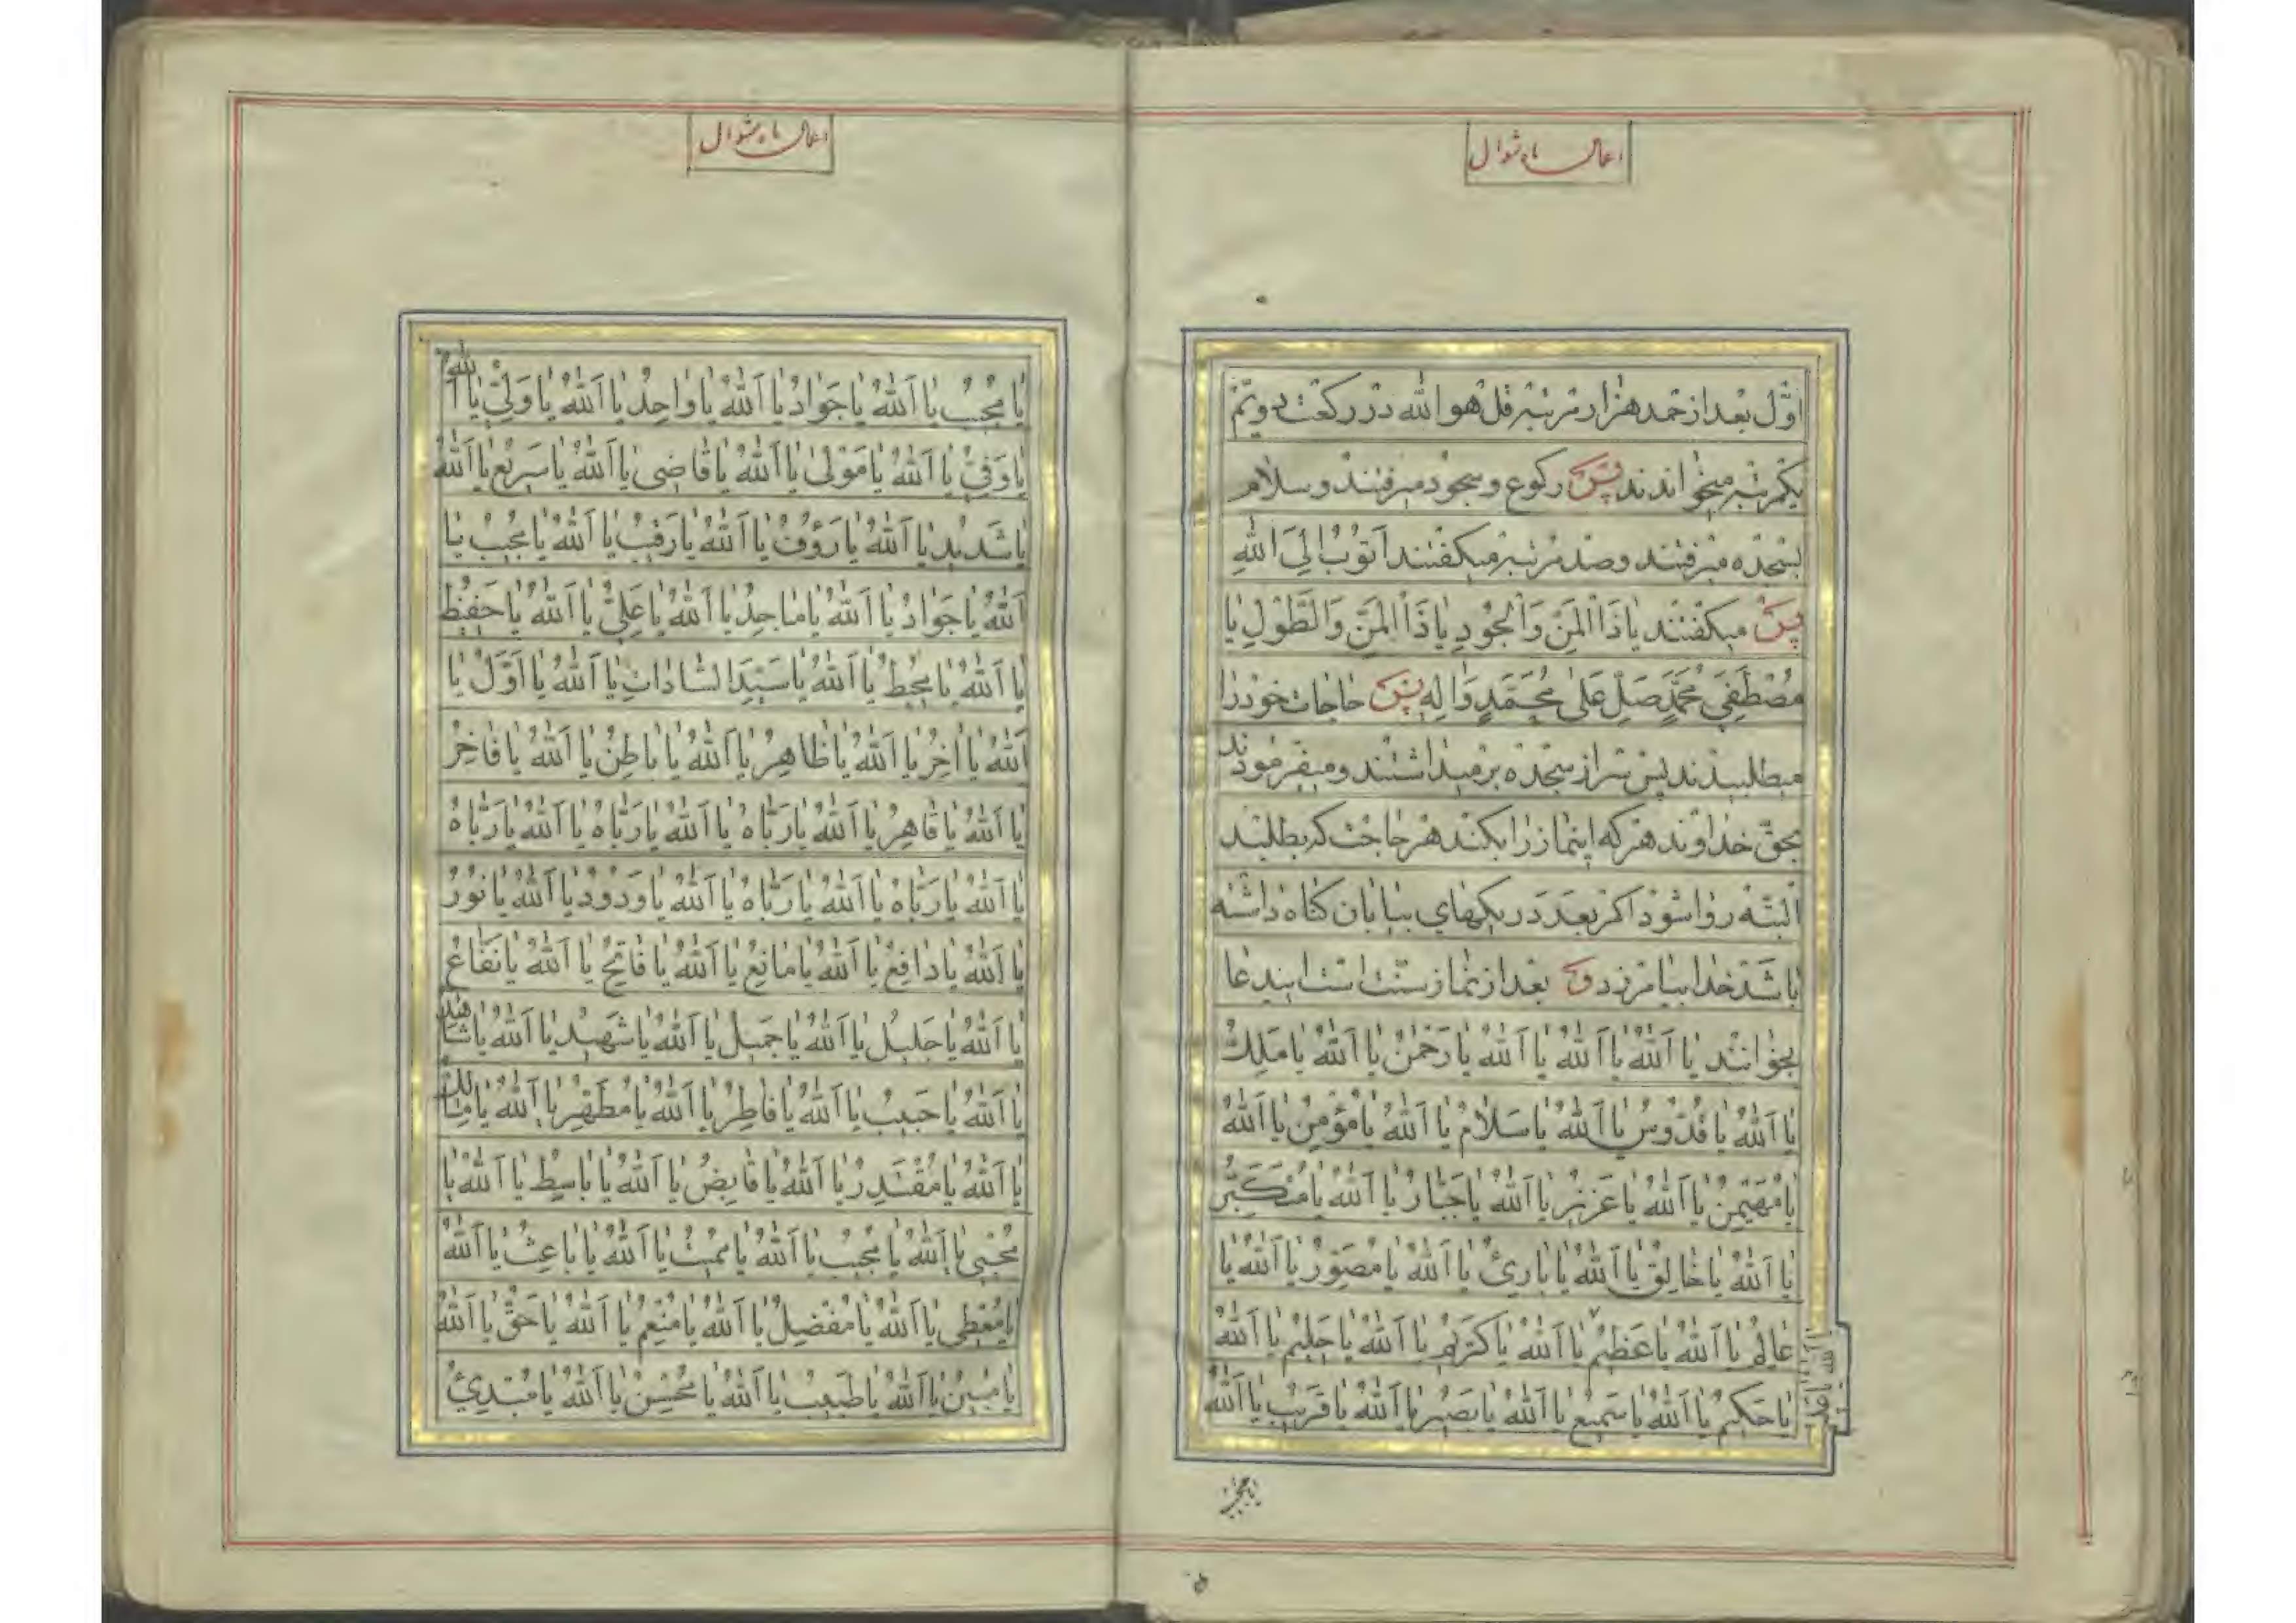 اعمال ماه شوال
اوّل بعد از حمد هزار مرتبه قل هو الله در ركعت دويّم
يكمرتبه ميخواندند پس ركوع وسجود ميرفتند وسلام
بسجده ميرفتند وصد مرتبه ميكفتند اَتُوبُ اِلَى اللهِ
پس ميكفتند يا ذَا الْمَنِّ وَالْجُودِ يا ذَا الْمَنِّ وَالطَّوْلِ يا
مُصْطَفِيَ مُحَمَّدٍ صَلِّ عَلى مُحَمَّدٍ وَالِهِ پس حاجات خودرا
ميطلبيدند پس سر از سجده بر ميداشتند وميفرمودند
بحقّ خداوند هر كه اينماز را بكند هر حاجت كه بطلبد
البتّه روا شود اكر بعدد ريكهاى بيابان كناه داشته
باشد خدا بيامرزد و بعد از نماز سنّت است ايندعا
بخوانند يا اَللهُ يا اَللهُ يا اَللهُ يا رَحْمنُ يا اَللهُ يا مَلِكُ
يا اَللهُ يا قُدّوُسُ يا اَللهُ يا سَلامُ يا اَللهُ يا مُؤْمِنُ يا اَللهُ
يا مُهَيْمِنُ يا اَللهُ يا عَزيزُ يا اَللهُ يا جَبّارُ يا اَللهُ يا مُتَكَبِّرُ
يا اَللهُ يا خالِقُ يا اَللهُ يا بارِئُ يا اَللهُ يا مُصَوِّرُ يا اَللهُ يا
عالِمُ يا اَللهُ يا عَظيمُ يا اَللهُ يا كَريمُ يا اَللهُ يا حَليمُ يا اَللهُ
يا حَكيمُ يا اَللهُ يا سَميعُ يا اَللهُ يا بَصيرُ يا اَللهُ يا قَريبُ يا اَللهُ
يا مجيب
اعمال ماه شوال
يا مُجيبُ يا اَللهُ يا جَوادُ يا اَللهُ يا واحِدُ يا اَللهُ يا وَلِيُّ يا اَللهُ
يا وَفِيُّ يا اَللهُ يا مَوْلى يا اَللهُ يا قاضى يا اَللهُ يا سَريعُ يا اَللهُ
يا شَديدُ يا اَللهُ يا رَؤُفُ يا اَللهُ يا رَقيبُ يا اَللهُ يا مُجيبُ يا
اَللهُ يا جَوادُ يا اَللهُ يا ماجِدُ يا اَللهُ يا عَلِيُّ يا اَللهُ يا حَفيظُ
يا اَللهُ يا مُحيطُ يا اَللهُ يا سَيِّدَ السّاداتِ يا اَللهُ يا اَوَّلُ يا
اَللهُ يا اخِرُ يا اَللهُ يا ظاهِرُ يا اَللهُ يا باطِنُ يا اَللهُ يا فاخِرُ
يا اَللهُ يا قاهِرُ يا اَللهُ يا رَبّاهُ يا اَللهُ يا رَبّاهُ يا اَللهُ يا رَبّاهُ
يا اَللهُ يا رَبّاهُ يا اَللهُ يا رَبّاهُ يا اَللهُ يا وَدُودُ يا اَللهُ يا نُورُ
يا اَللهُ يا دافِعُ يا اَللهُ يا مانِعُ يا اَللهُ يا فاتِحُ يا اَللهُ يا نَفّاعُ
يا اَللهُ يا جَليلُ يا اَللهُ يا جَميلُ يا اَللهُ يا شَهيدُ يا اَللهُ يا شاهِدُ
يا اَللهُ يا حَبيبُ يا اَللهُ يا فاطِرُ يا اَللهُ يا مُطَهِّرُ يا اَللهُ يا مالِكُ
يا اَللهُ يا مُقْتَدِرُ يا اَللهُ يا قابِضُ يا اَللهُ يا باسِطُ يا اَللهُ يا
مُحْيى يا اَللهُ يا مُجيبُ يا اَللهُ يا مُميتُ يا اَللهُ يا باعِثُ يا اَللهُ
يا مُعْطى يا اَللهُ يا مُفْضِلُ يا اَللهُ يا مُنْعِمُ يا اَللهُ يا حَقُّ يا اَللهُ
يا مُبينُ يا اَللهُ يا طَبيبُ يا اَللهُ يا مُحْسِنُ يا اَللهُ يا مُبْدِئُ